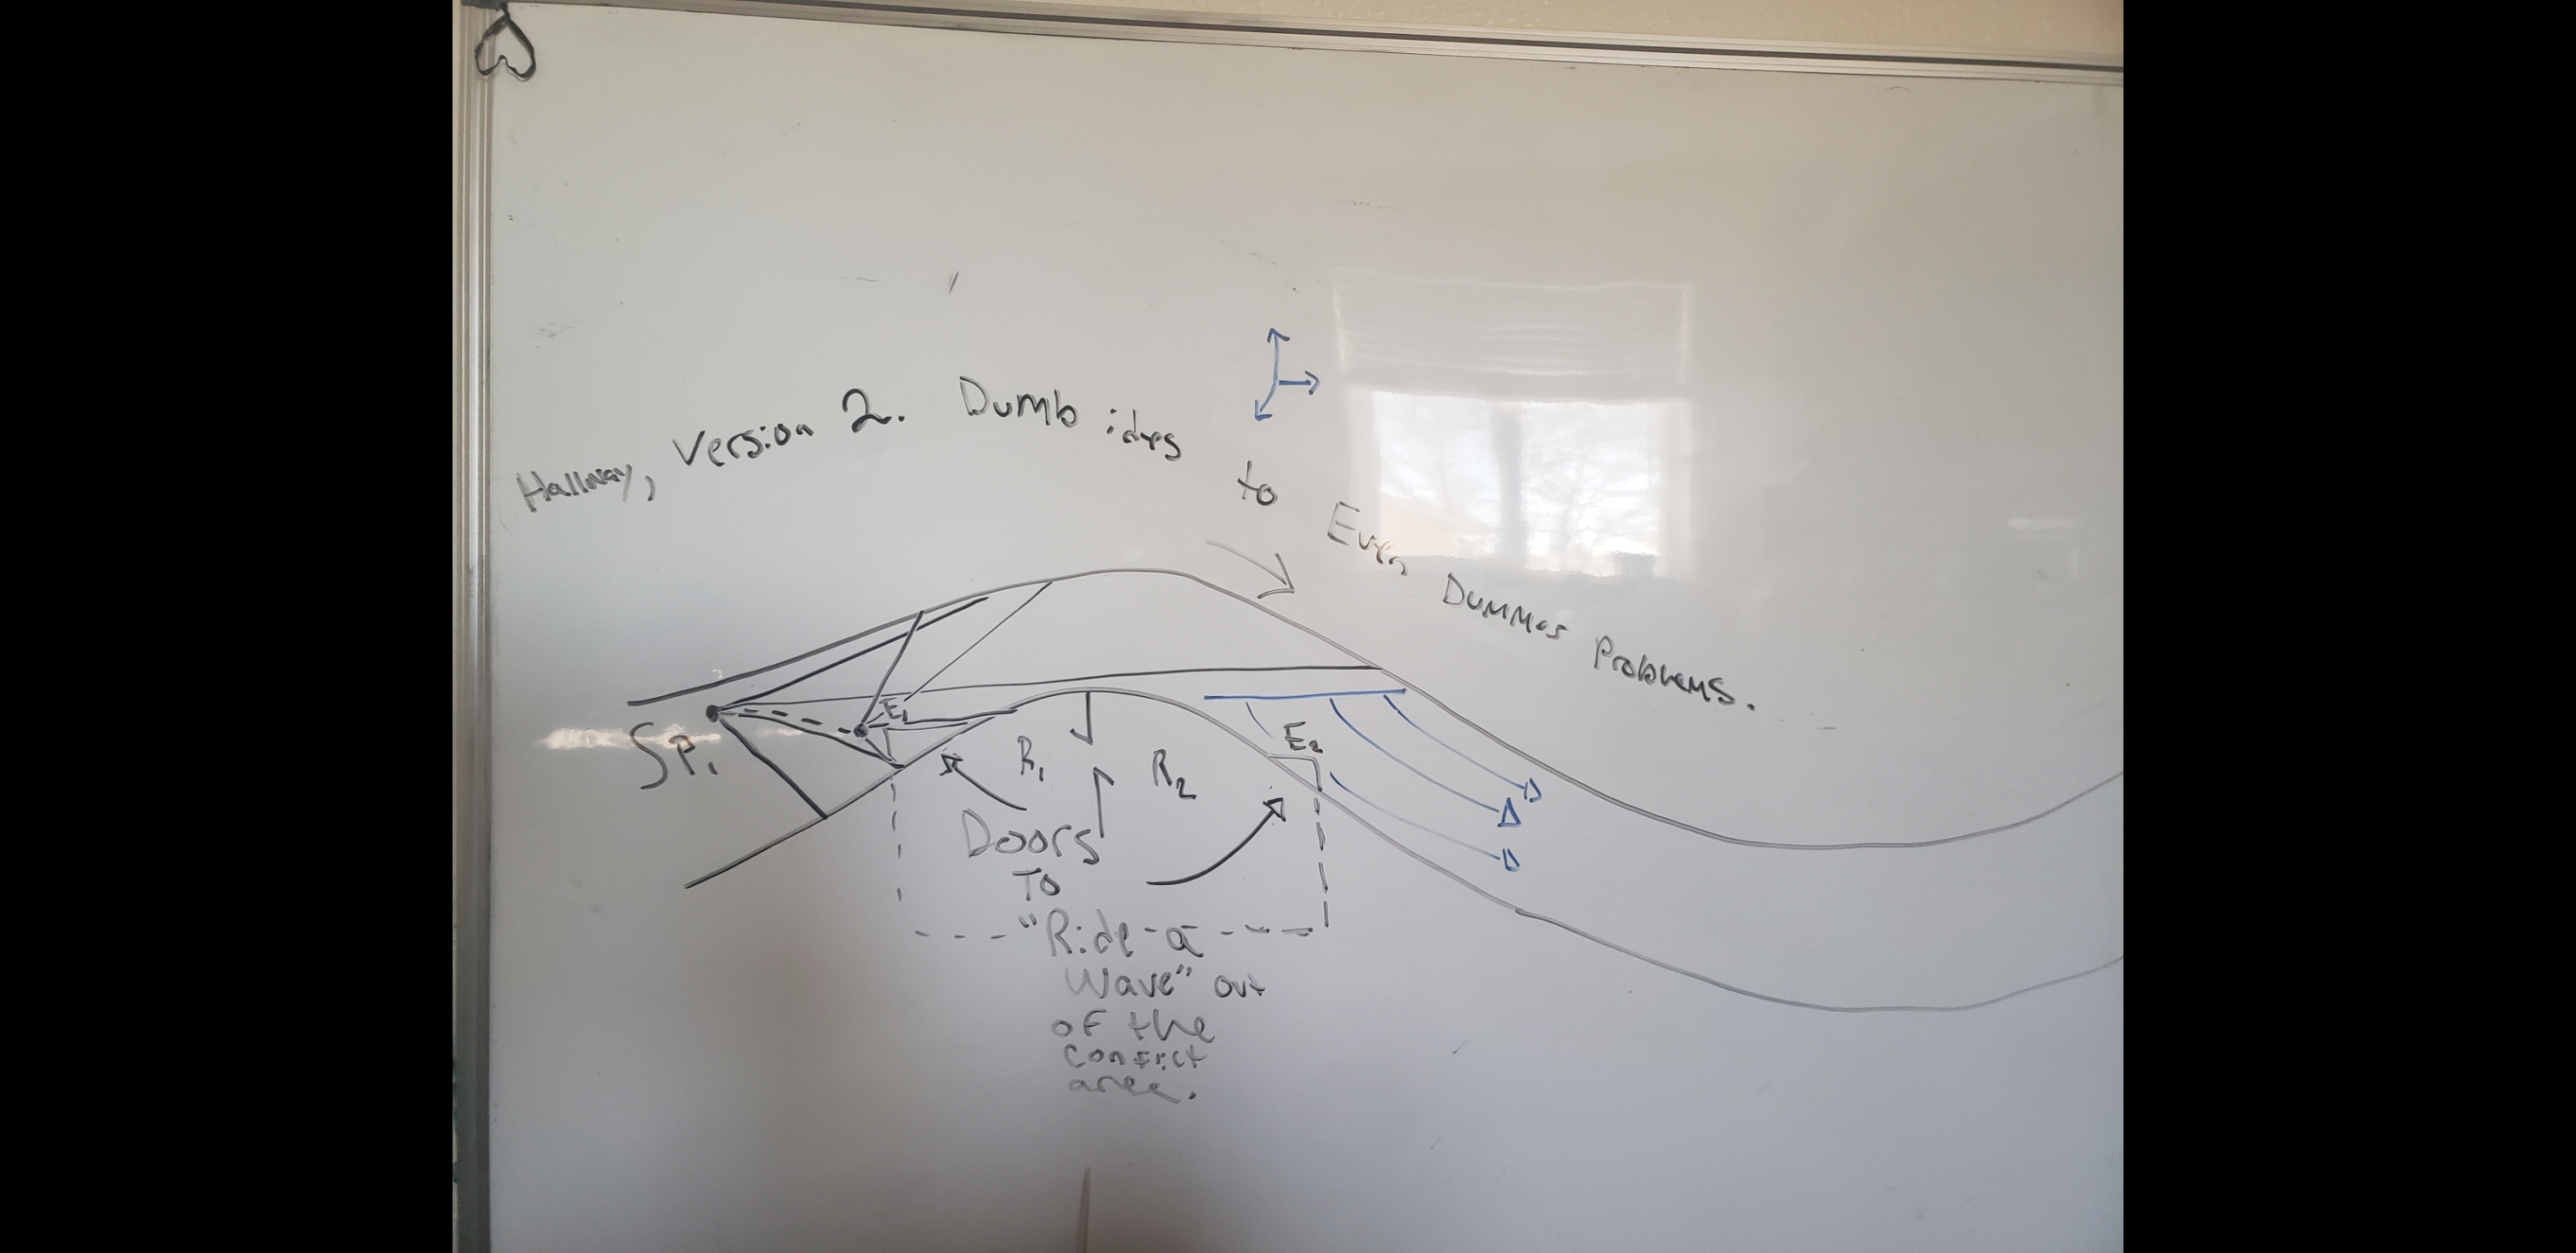 Hallway, Version 2. Dumb ides to Even Dummer Problems.
SP1
E1
R1
R2
E2
Doors
To
"Ride-a
Wave" out
of the
confict
area.